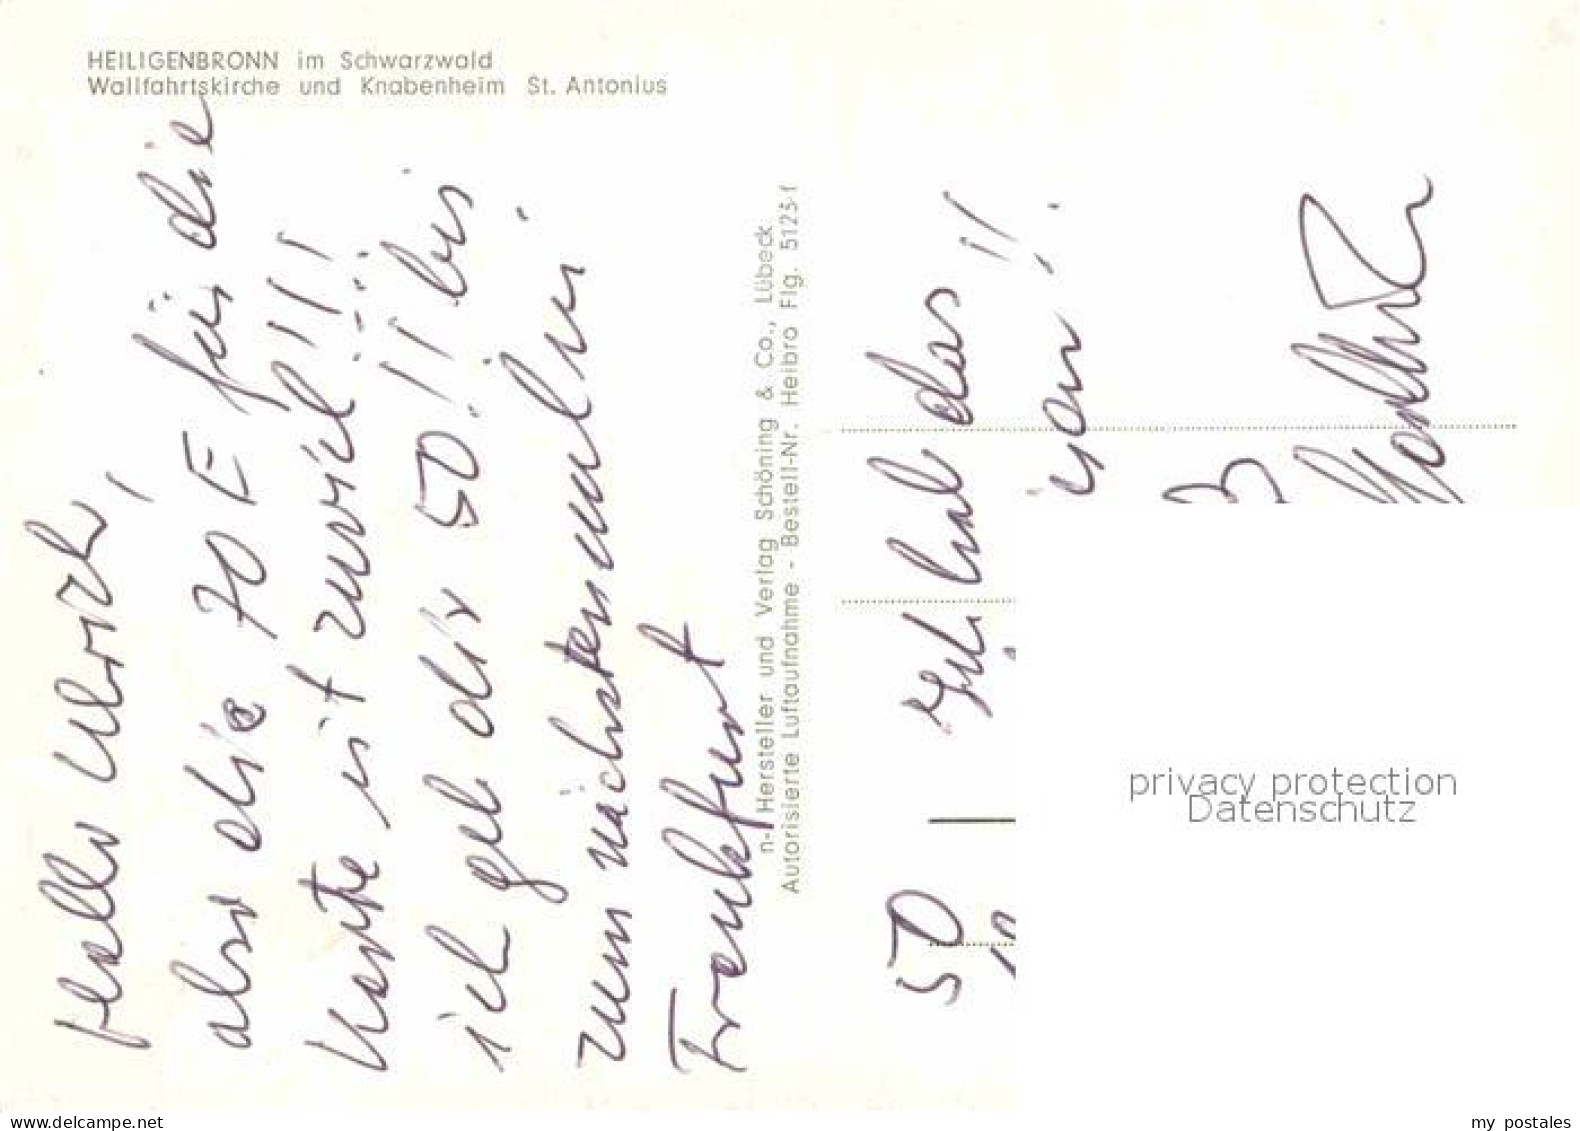 HEILIGENBRONN im Schwarzwald
Wallfahrtskirche und Knabenheim St. Antonius
Hallo Ulrich,
also die 70 E für die
Karte ist zuviel!!!!
ich geb dir 50!!! bis
zum nächstenmal in
Frankfurt
n- Hersteller und Verlag Schöning & Co., Lübeck
Autorisierte Luftaufnahme - Bestell-Nr. Heibro Flg. 5125 f
50 Ich hab das!!
privacy protection
Datenschutz
www.delcampe.net
my postales